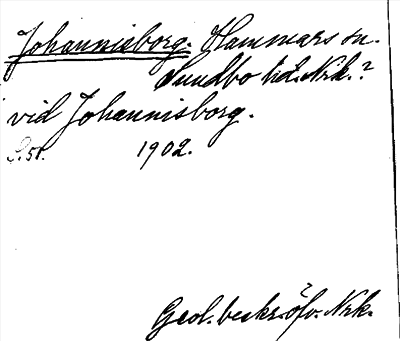 Johannisborg. Hammars sn.
Sundbo hd. Nrk.?
vid Johannisborg.
S. 51. 1902.
Geol. beskr. öfv. Nrk.